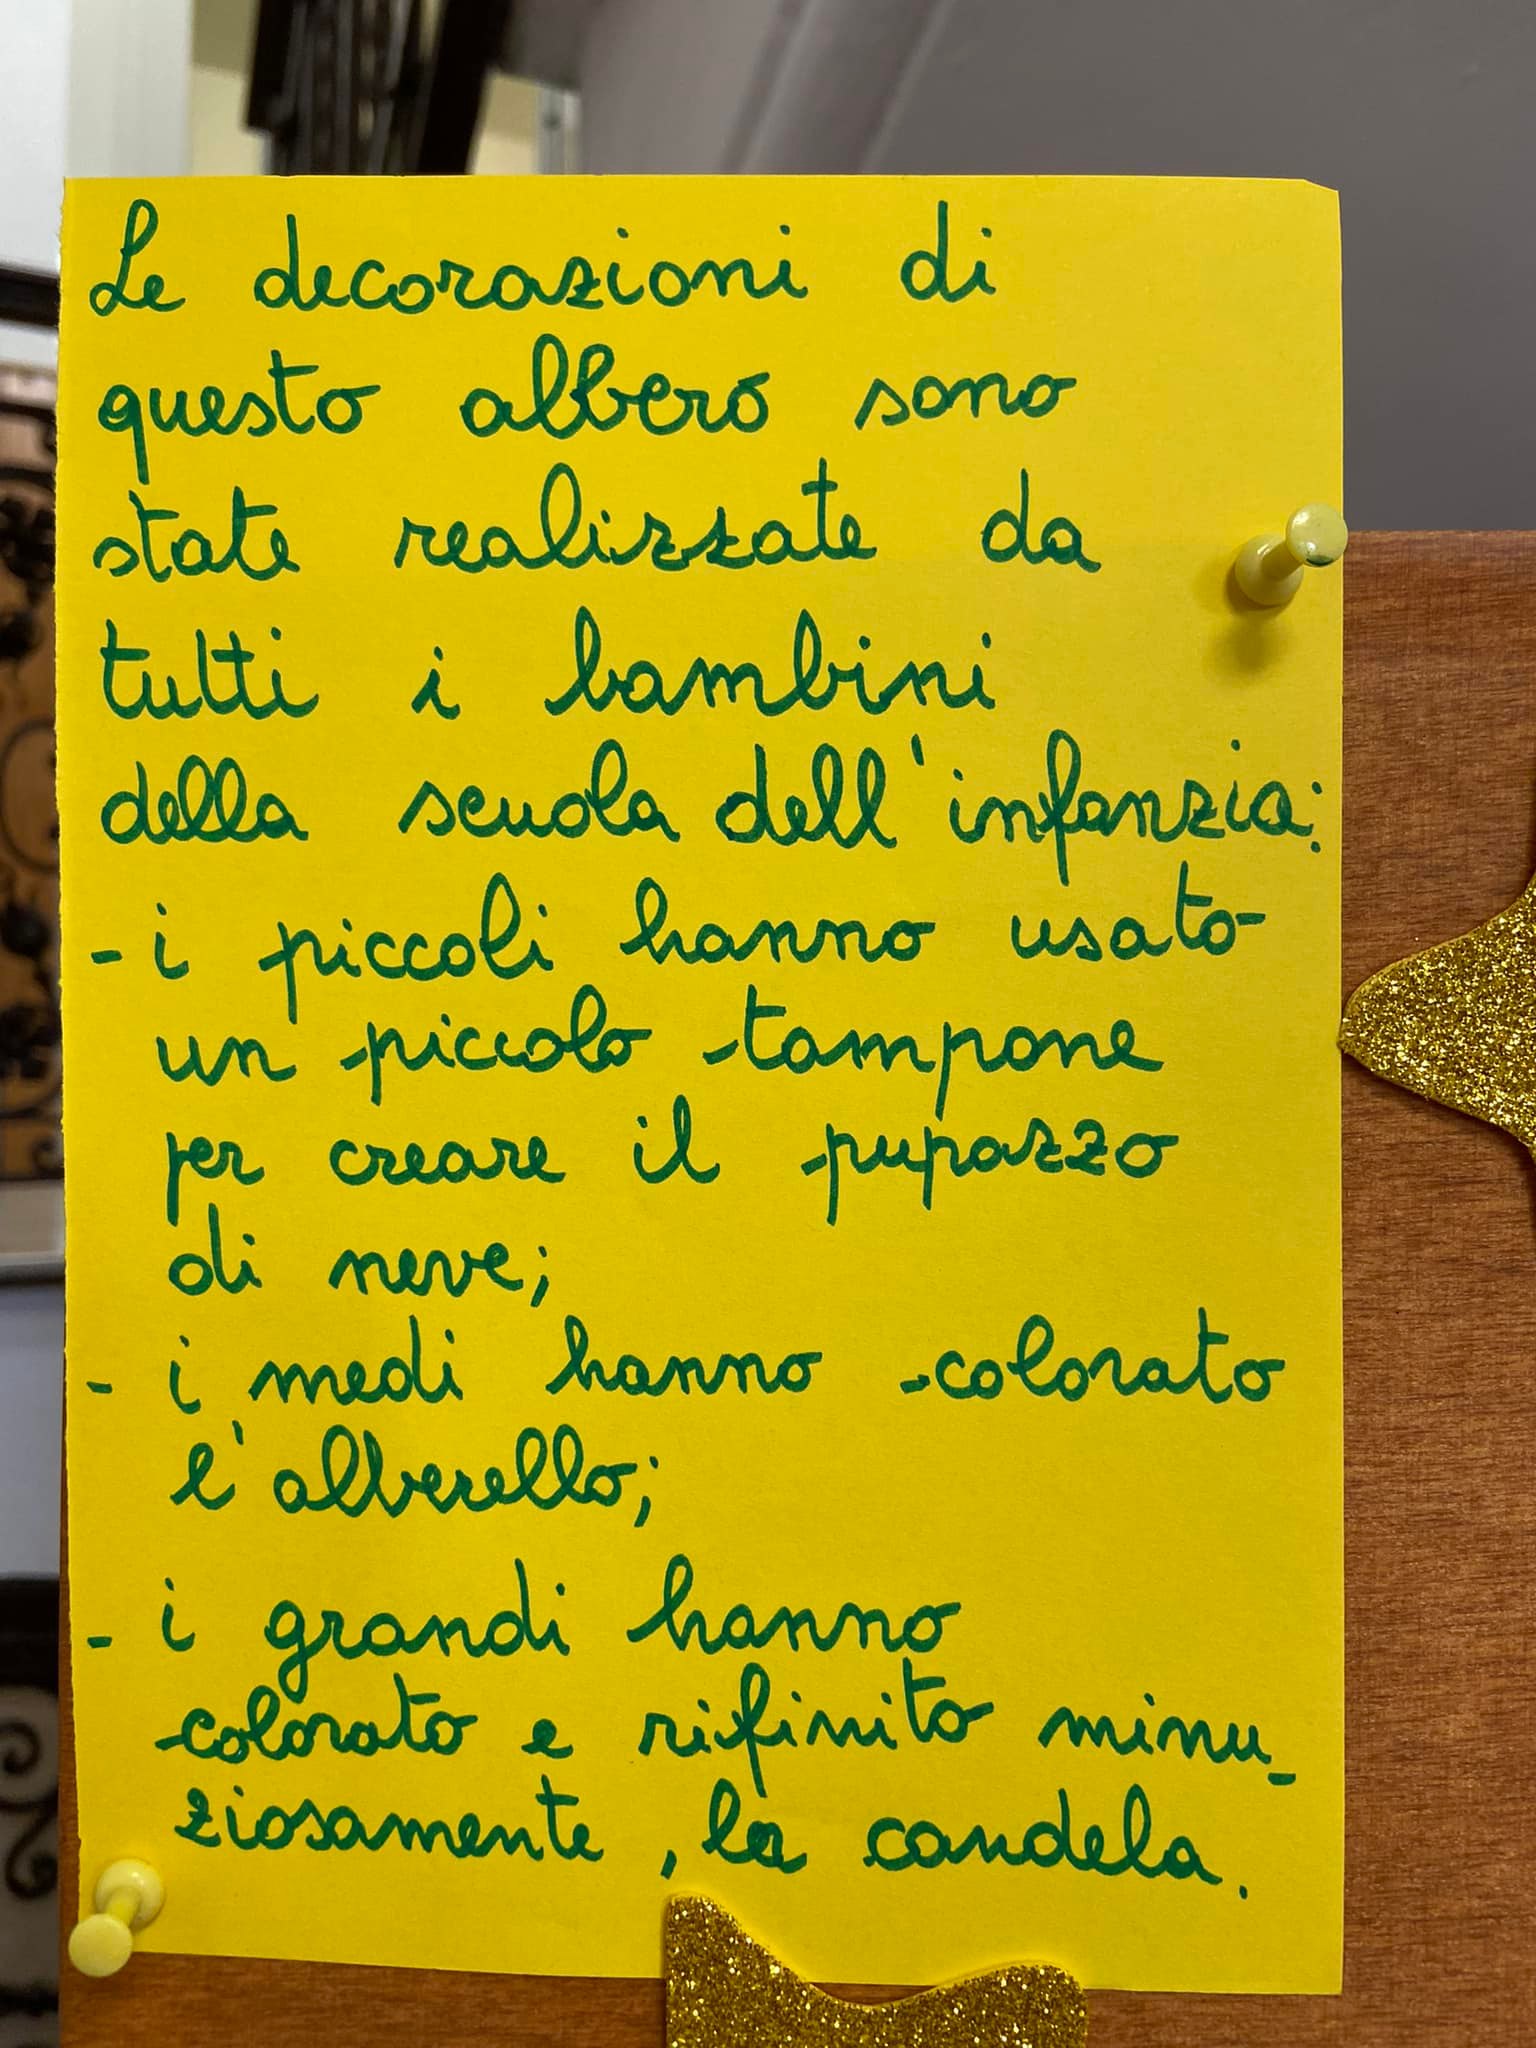 Le decorazioni di
questo albero sono
state realizzate da
tutti i bambini
della scuola dell'infanzia:
- i piccoli hanno usato
un piccolo tampone
per creare il pupazzo
di neve;
- i medi hanno colorato
l'alberello;
- i grandi hanno
colorato e rifinito minu_
ziosamente, la candela.